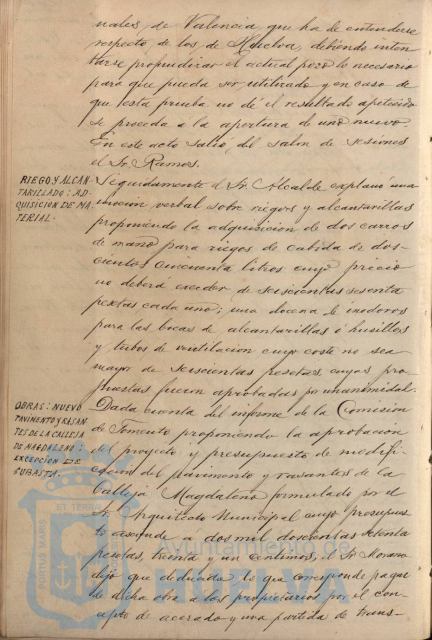 nales, de Valencia que ha de entenderse
respecto de los de Huelva, debiendo inten
tarse profundizar el actual pozo lo necesario
para que pueda ser utilizado y en caso de
que esta prueba no dé el resultado apetecido
se proceda a la apertura de uno nuevo.
En este acto salió del salon de sesiones
el Sr. Ramos.
RIEGO Y ALCAN-
TARILLADO: AD-
QUISICIÓN DE MA-
TERIAL.-
Seguidamente el Sr. Alcalde explanó una
mocion verbal sobre riegos y alcantarillas
proponiendo la adquisicion de dos carros
de mano para riegos de cabida de dos-
cientos cincuenta litros cuyo precio
no deberá exceder de seiscientas sesenta
pesetas cada uno; una docena de inodoros
para las bocas de alcantarillas ó husillos
y tubos de ventilacion cuyo coste no sea
mayor de seiscientas pesetas cuyas pro-
puestas fueron aprobadas por unanimidad.
OBRAS: NUEVO
PAVIMENTO Y RASAN
TES DE LA CALLEJA
DE MAGDALENO:
EXCEPCIÓN DE
SUBASTA.
Dada cuenta del informe de la Comision
de Fomento proponiendo la aprobacion
del proyecto y presupuesto de modifi-
cacion del pavimento y rasantes de la
Calleja Magdaleno formulado por el
Sr. Arquitecto Municipal cuyo presupues
to asciende a dos mil doscientas setenta
pesetas, treinta y un centimos, el Sr. Morano
dijo que deducido lo que corresponde pagar
de dicha obra a los propietarios por el con-
cepto de acerado y una partida de trans-
PORTUS MARIS ET TERRAE
Ayuntamiento de
HUELVA